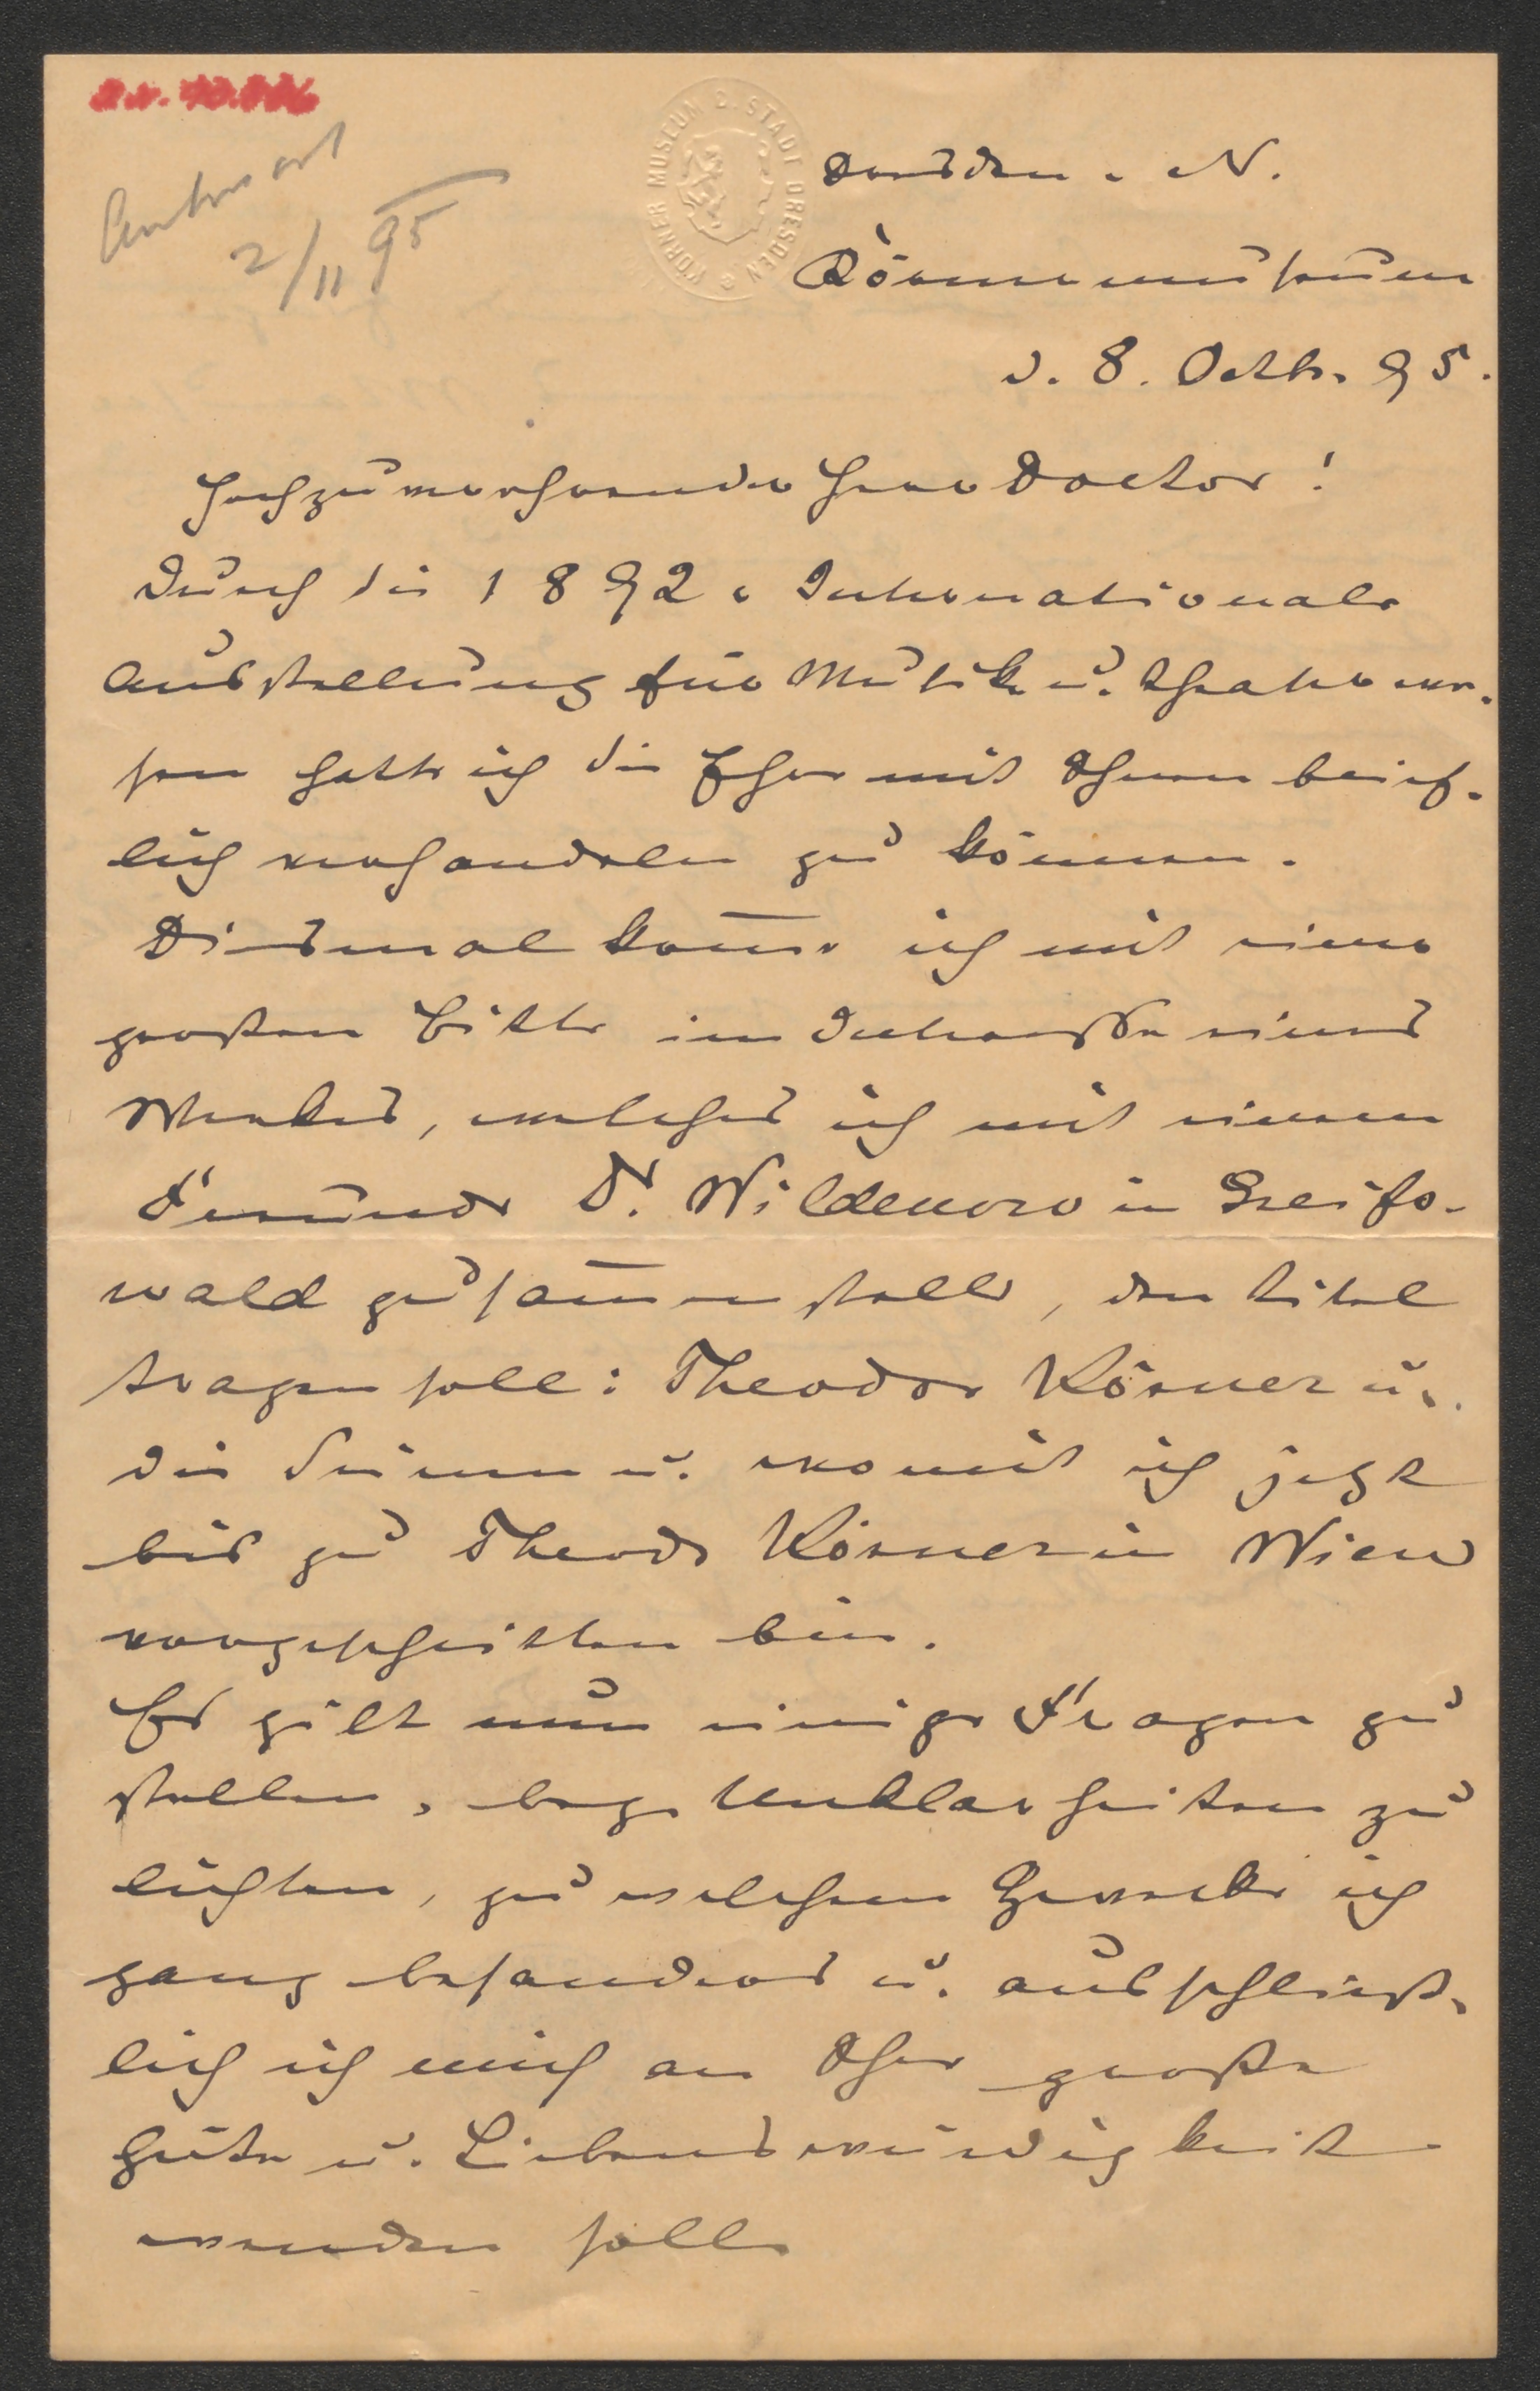 Antwort
2/11 95
KÖRNER MUSEUM D. STADT DRESDEN
Dresden-N.
Körnermuseum
d. 8. Octb. 95.
Hochzuverehrender Herr Doctor!
Durch die 1892er Internationale
Ausstellung für Musik u. Theaterwe-
sen hatte ich die Ehre mit Ihnen brief-
lich verhandeln zu können.
Diesmal kom̅e ich mit einer
großen Bitte im Interesse eines
Werkes, welches ich mit einem
Freunde Dr. Wildenow in Greifs-
wald zusam̅enstelle, den Titel
tragen soll: Theodor Körner u.
die Seinen u. womit ich jetzt
bis zu Theodor Körner in Wien
vorgeschritten bin.
Es gilt nun einige Fragen zu
stellen, bezg. Unklarheiten zu
lichten, zu welchem Zwecke ich
ganz besonders u. ausschließ-
lich ich mich an Ihre große
Güte u. Liebenswürdigkeit
wenden soll